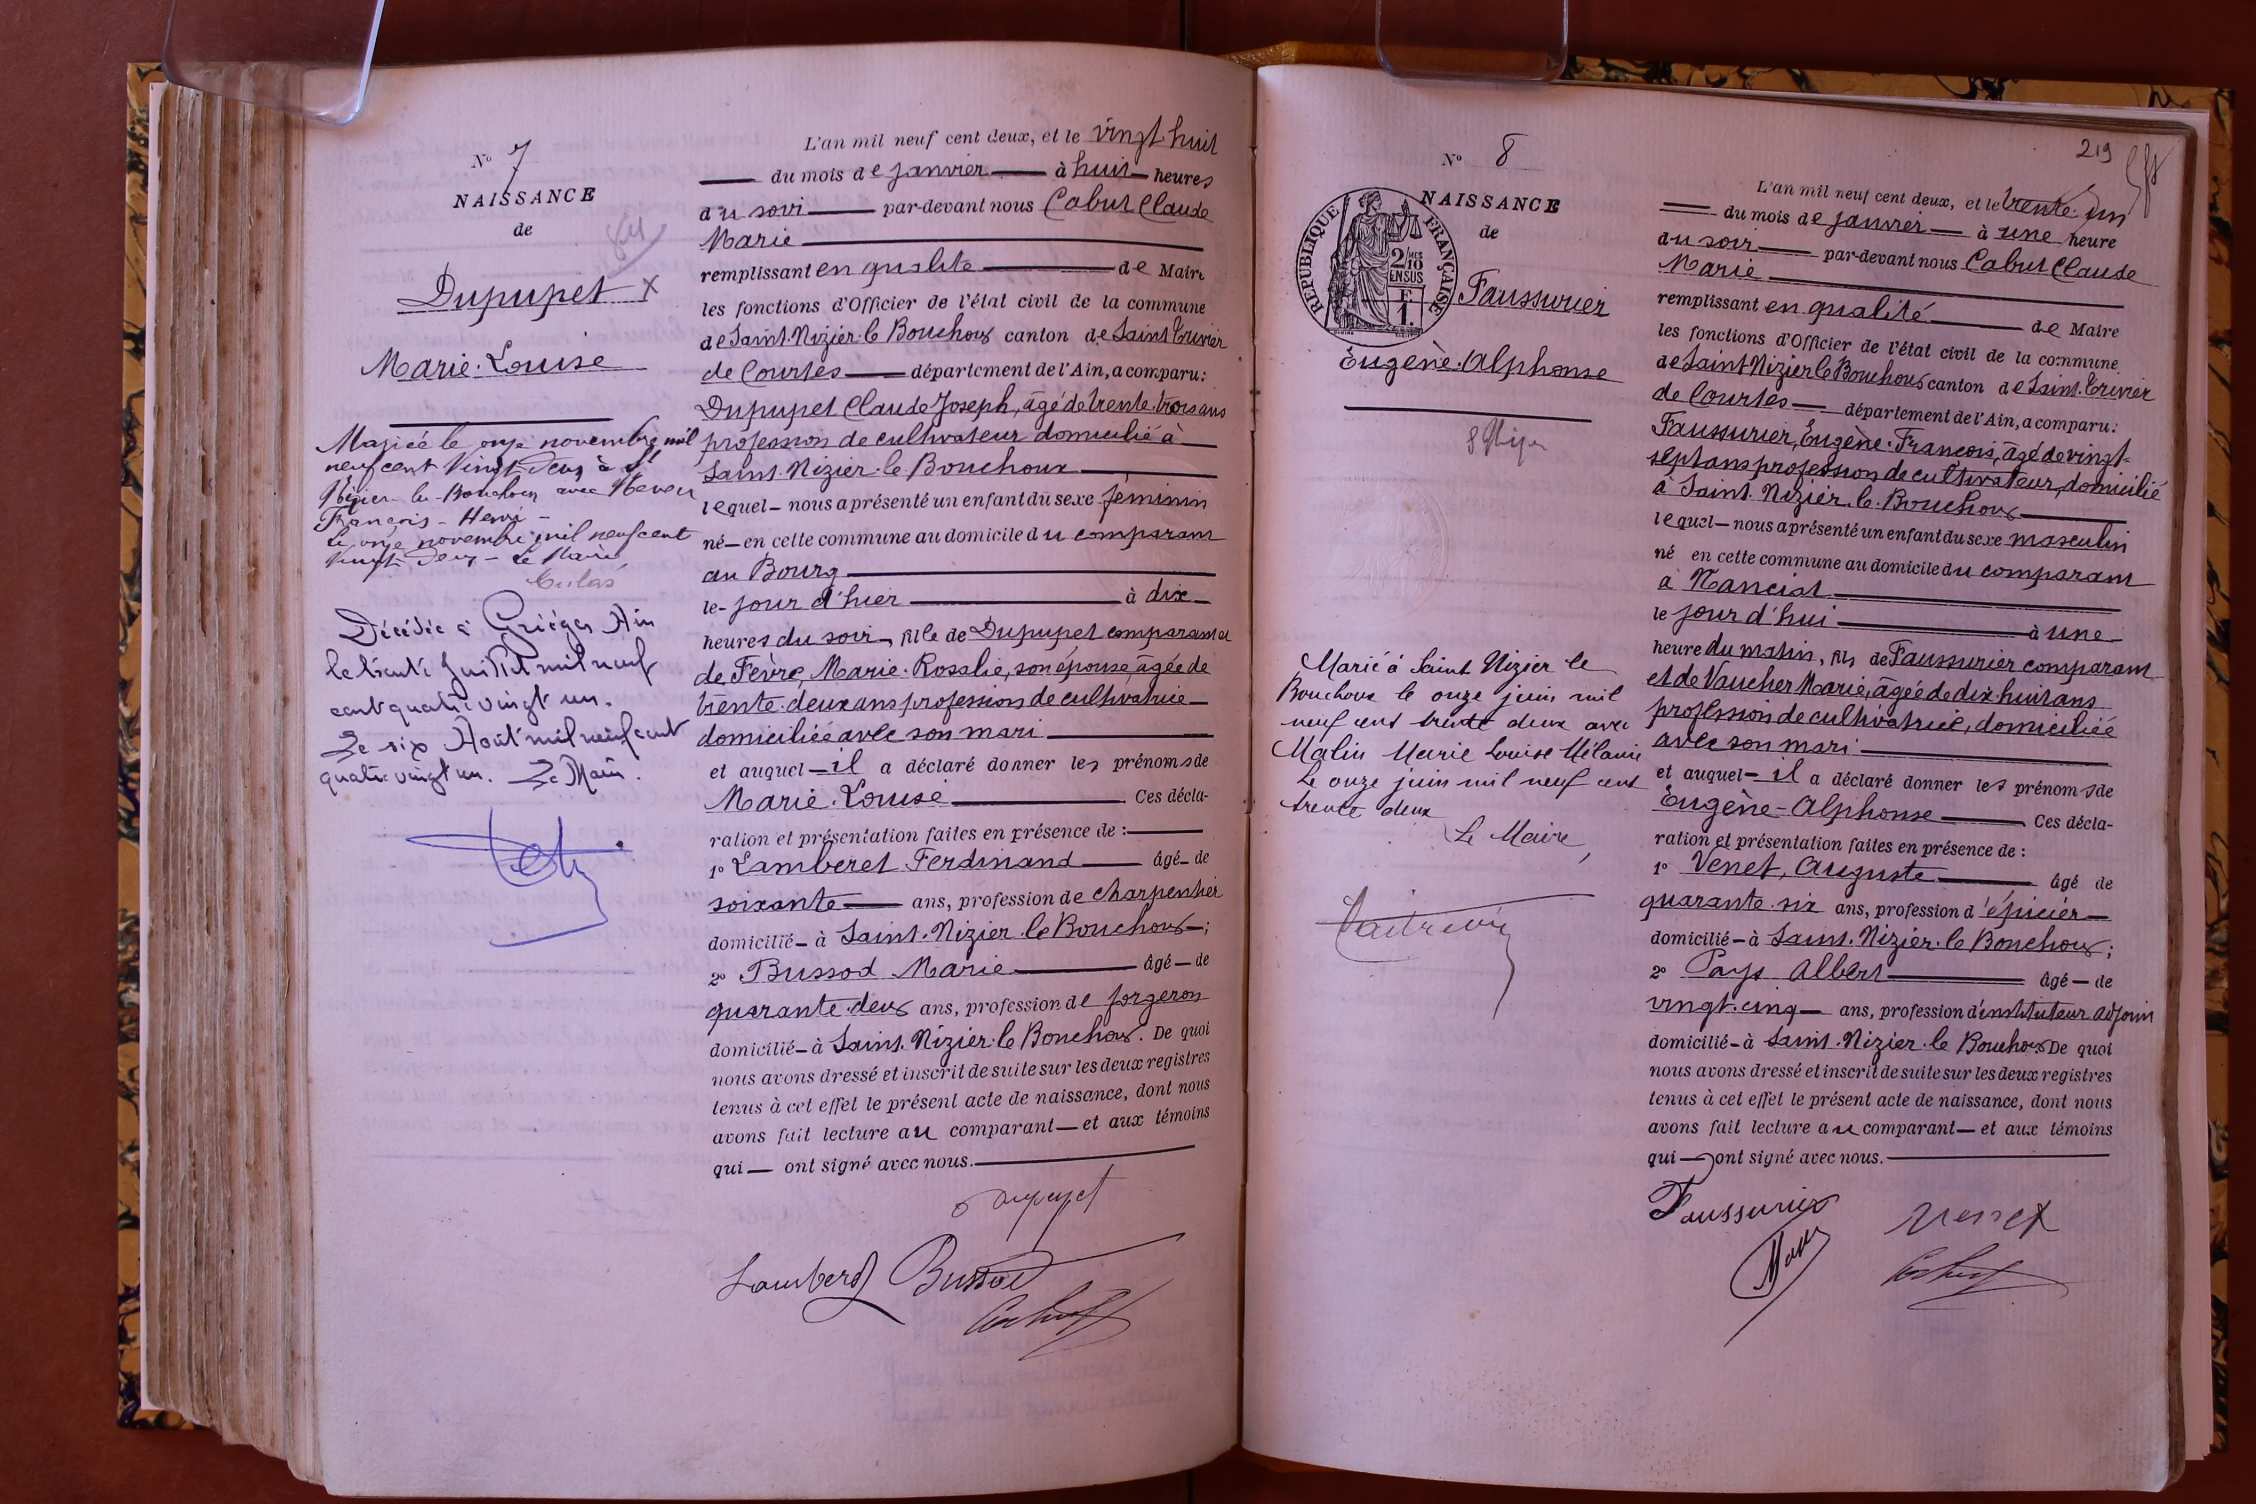 N° 7
NAISSANCE
de
Dupupet X
Marie-Louise
Mariée le onze novembre mil
neuf cent vingt deux à St
Nizier-le-Bouchoux avec
François-Henri-
Le onze novembre mil neuf cent
vingt deux - Le Maire
Décédée à Grièges Ain
le trente Juillet mil neuf
cent quatre vingt un.
Le six Août mil neuf cent
quatre vingt un. Le Maire.
L'an mil neuf cent deux, et le vingt-huit
du mois de janvier à huit heures
du soir par-devant nous Cabut Claude
Marie
remplissant en qualité de Maire
les fonctions d'Officier de l'état civil de la commune
de Saint-Nizier-le Bouchoux canton de Saint-Trivier
de Courtes département de l'Ain, a comparu:
Dupupet Claude Joseph, âgé de trente-trois ans
profession de cultivateur domicilié à
Saint-Nizier-le-Bouchoux
lequel nous a présenté un enfant du sexe féminin
né en cette commune au domicile du comparant
au Bourg
le jour d'hier à dix
heures du soir, fille de Dupupet comparant et
de Fèvre, Marie-Rosalie, son épouse, âgée de
trente-deux ans profession de cultivatrice
domiciliée avec son mari
et auquel il a déclaré donner les prénoms de
Marie-Louise Ces décla-
ration et présentation faites en présence de :
1° Lamberet Ferdinand âgé de
soixante ans, profession de charpentier
domicilié à Saint-Nizier-le Bouchoux ;
2° Bussod Marie âgé de
quarante-deux ans, profession de forgeron
domicilié à Saint-Nizier-le Bouchoux. De quoi
nous avons dressé et inscrit de suite sur les deux registres
tenus à cet effet le présent acte de naissance, dont nous
avons fait lecture au comparant et aux témoins
qui ont signé avec nous.
Dupupet
Lamberet Bussod
Cabut
219
N° 8
NAISSANCE
de
RÉPUBLIQUE FRANÇAISE
2/10 EN SUS
F
1.
Faussurier
Eugène-Alphonse
Marié à Saint Nizier le
Bouchoux le onze juin mil
neuf cent trente deux avec
Malin Marie Louise Mélanie
Le onze juin mil neuf cent
trente deux
Le Maire,
L'an mil neuf cent deux, et le trente-un
du mois de janvier à une heure
du soir par-devant nous Cabut Claude
Marie
remplissant en qualité de Maire
les fonctions d'Officier de l'état civil de la commune
de Saint-Nizier le Bouchoux canton de Saint-Trivier
de Courtes département de l'Ain, a comparu:
Faussurier, Eugène-François, âgé de vingt-
sept ans profession de cultivateur, domicilié
à Saint-Nizier-le-Bouchoux
lequel nous a présenté un enfant du sexe masculin
né en cette commune au domicile du comparant
à Manciat
le jour d'hui à une
heure du matin, fils de Faussurier comparant
et de Vaucher Marie, âgée de dix-huit ans
profession de cultivatrice, domiciliée
avec son mari
et auquel il a déclaré donner les prénoms de
Eugène-Alphonse Ces décla-
ration et présentation faites en présence de :
1° Venet, Auguste âgé de
quarante-six ans, profession d'épicier
domicilié à Saint-Nizier-le Bouchoux ;
2° Pays Albert âgé de
vingt-cinq ans, profession d'instituteur adjoint
domicilié à Saint-Nizier-le Bouchoux De quoi
nous avons dressé et inscrit de suite sur les deux registres
tenus à cet effet le présent acte de naissance, dont nous
avons fait lecture au comparant et aux témoins
qui ont signé avec nous.
Faussurier Venet
Cabut